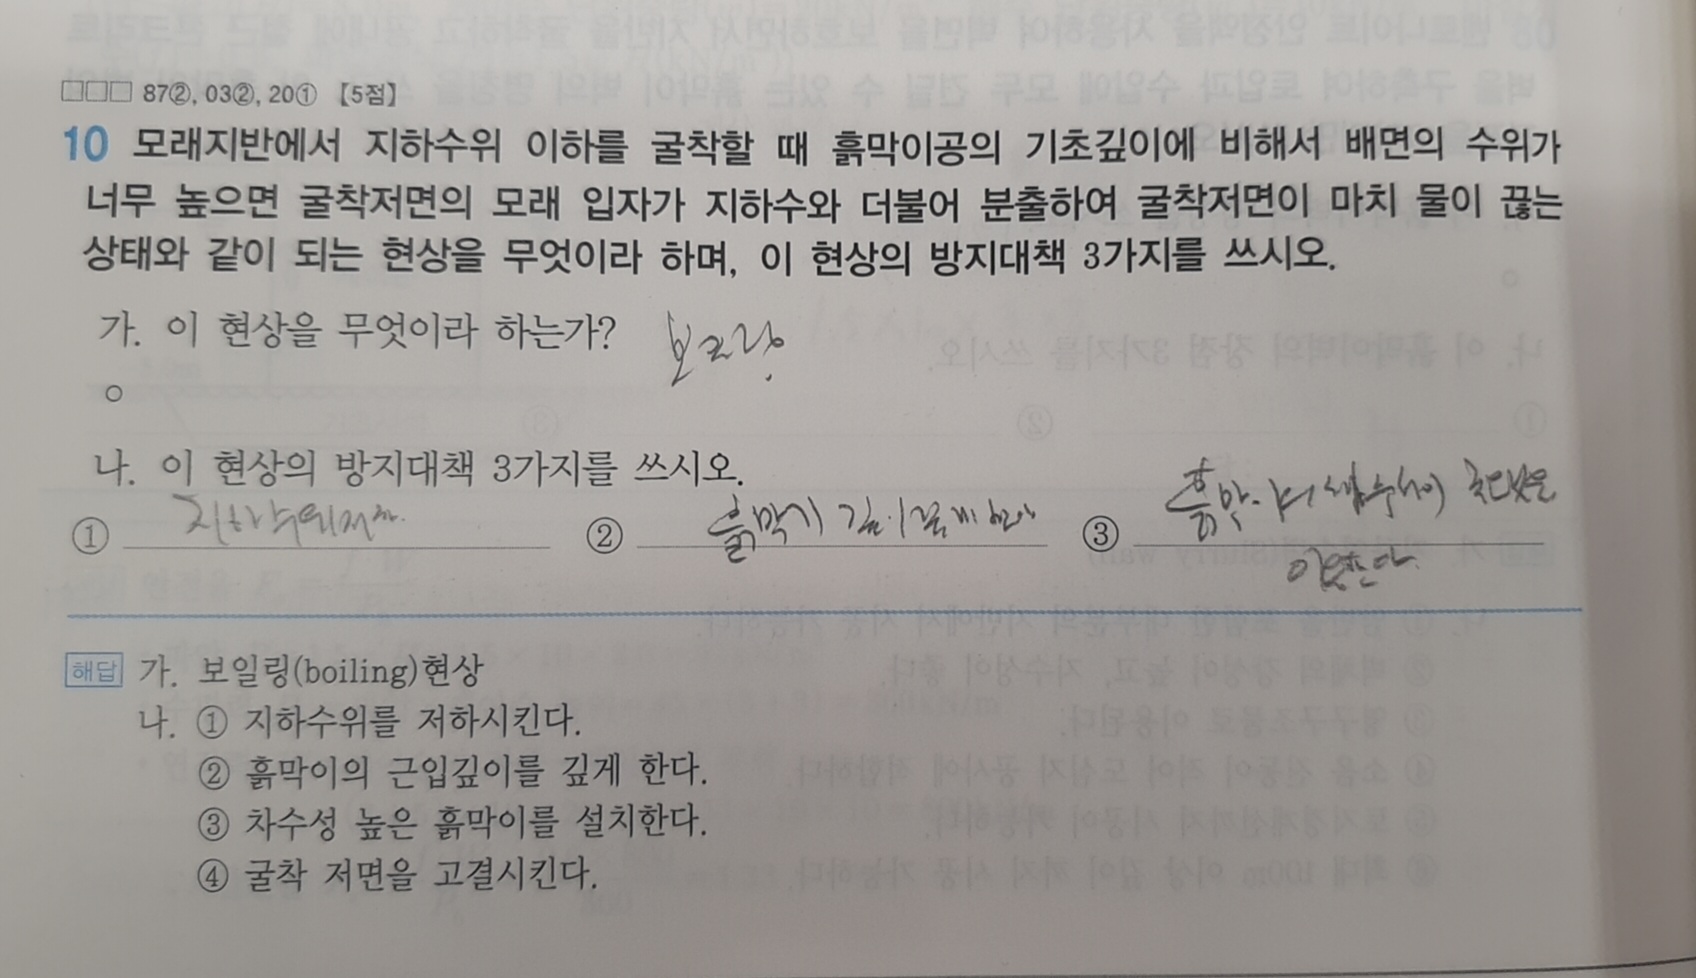 □□□ 87②, 03②, 20① 【5점】
10 모래지반에서 지하수위 이하를 굴착할 때 흙막이공의 기초깊이에 비해서 배면의 수위가
너무 높으면 굴착저면의 모래 입자가 지하수와 더불어 분출하여 굴착저면이 마치 물이 끊는
상태와 같이 되는 현상을 무엇이라 하며, 이 현상의 방지대책 3가지를 쓰시오.
가. 이 현상을 무엇이라 하는가?
나. 이 현상의 방지대책 3가지를 쓰시오.
① 지하수위저하. ② 흙막이 ③
해답 가. 보일링(boiling)현상
나. ① 지하수위를 저하시킨다.
② 흙막이의 근입깊이를 깊게 한다.
③ 차수성 높은 흙막이를 설치한다.
④ 굴착 저면을 고결시킨다.